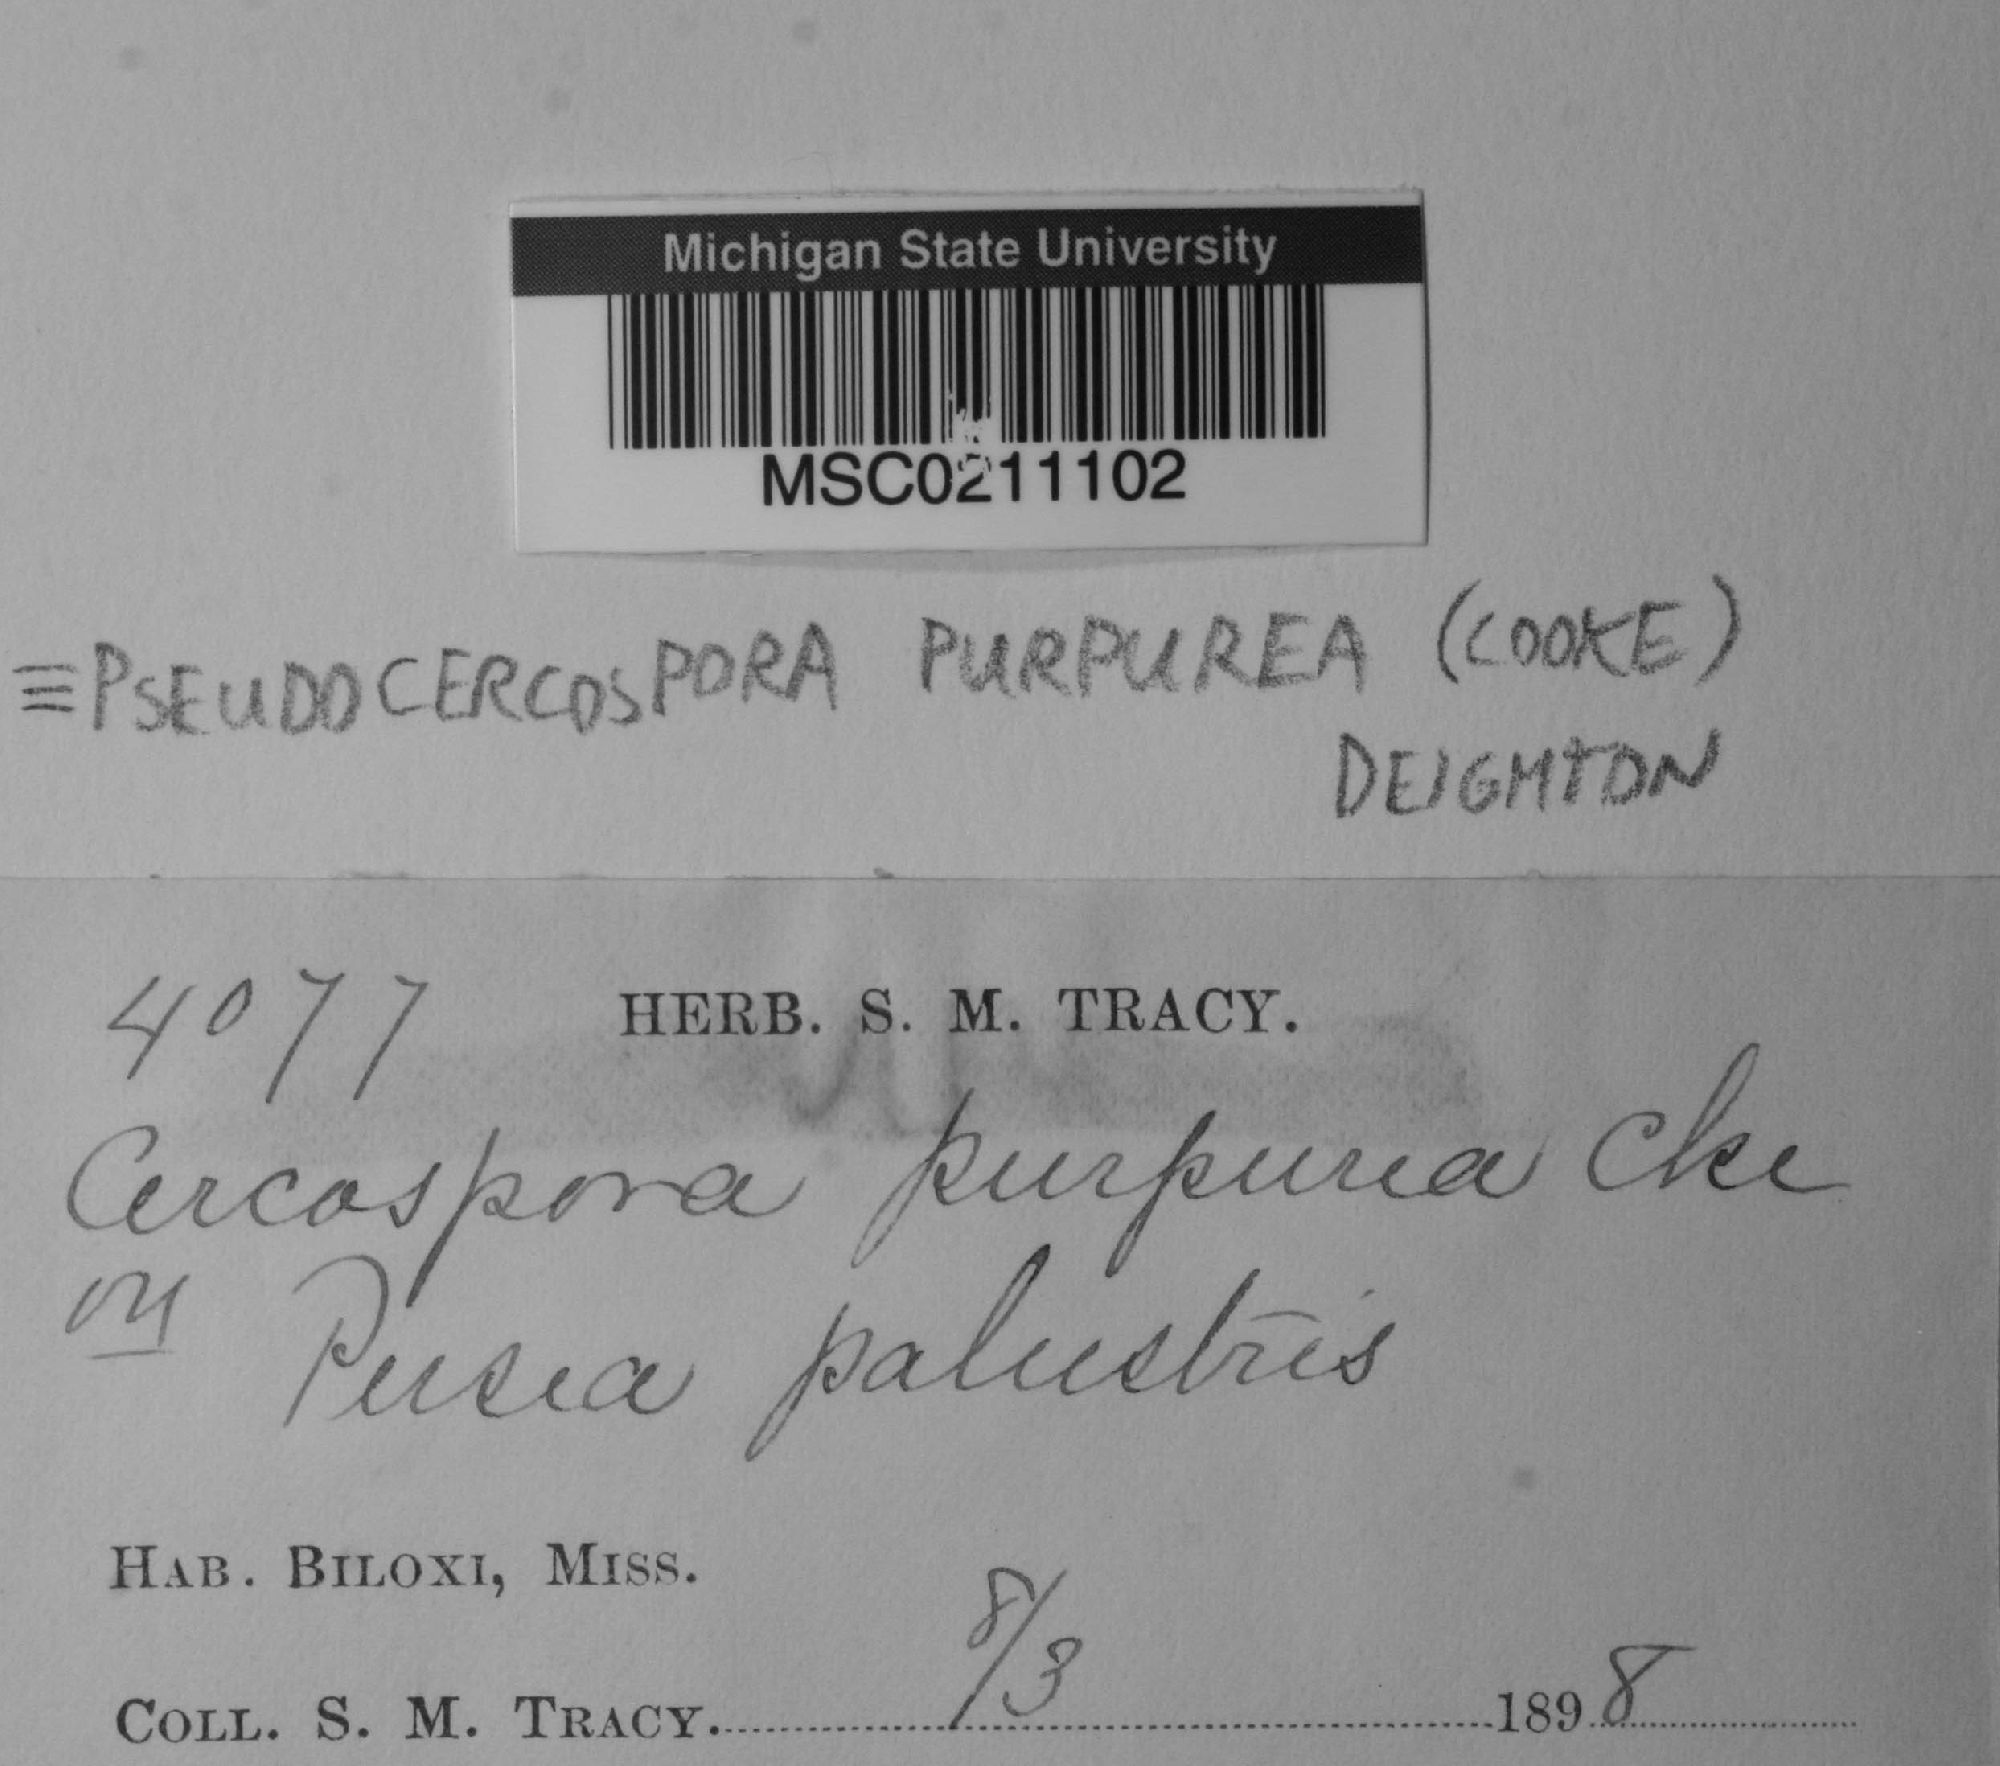 Michigan State University
MSC0211102
≡PSEUDOCERCOSPORA PURPUREA (COOKE)
DEIGHTON
4077 HERB. S. M. TRACY.
Cercospora purpurea Cke
on Persea palustris
HAB. BILOXI, MISS.
COLL. S. M. TRACY. 8/3 1898